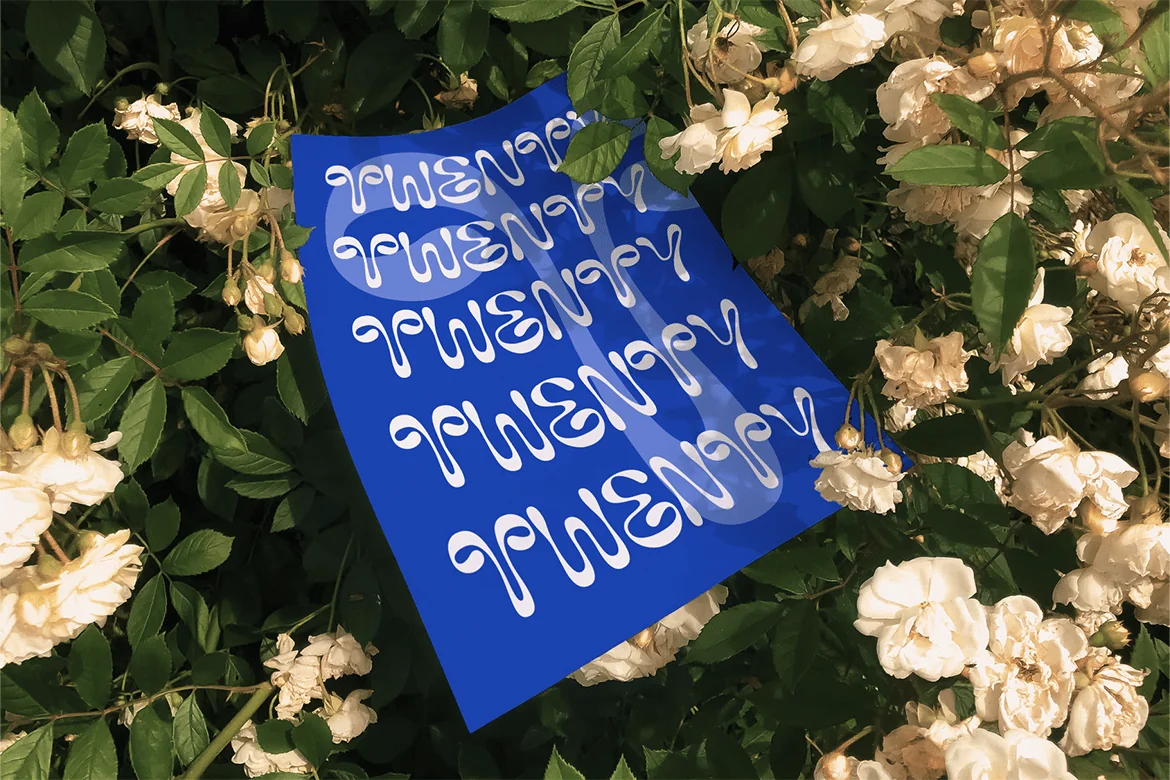 TWENTY
TWENTY
TWENTY
TWENTY
TWENTY